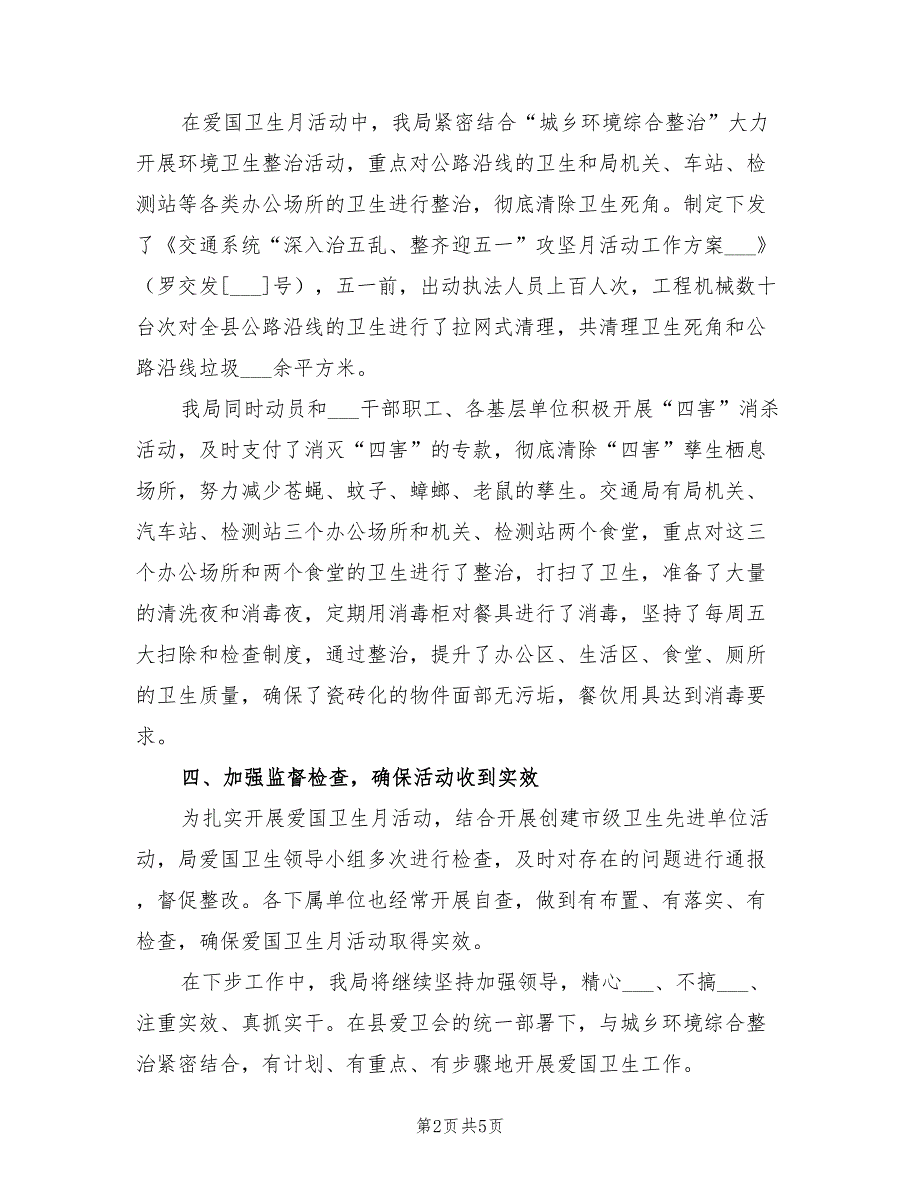 在爱国卫生月活动中，我局紧密结合“城乡环境综合整治”大力
开展环境卫生整治活动，重点对公路沿线的卫生和局机关、车站、检
测站等各类办公场所的卫生进行整治，彻底清除卫生死角。制定下发
了《交通系统“深入治五乱、整齐迎五一”攻坚月活动工作方案___》
（罗交发[___]号），五一前，出动执法人员上百人次，工程机械数十
台次对全县公路沿线的卫生进行了拉网式清理，共清理卫生死角和公
路沿线垃圾___余平方米。
我局同时动员和___干部职工、各基层单位积极开展“四害”消杀
活动，及时支付了消灭“四害”的专款，彻底清除“四害”孳生栖息
场所，努力减少苍蝇、蚊子、蟑螂、老鼠的孳生。交通局有局机关、
汽车站、检测站三个办公场所和机关、检测站两个食堂，重点对这三
个办公场所和两个食堂的卫生进行了整治，打扫了卫生，准备了大量
的清洗夜和消毒夜，定期用消毒柜对餐具进行了消毒，坚持了每周五
大扫除和检查制度，通过整治，提升了办公区、生活区、食堂、厕所
的卫生质量，确保了瓷砖化的物件面部无污垢，餐饮用具达到消毒要
求。
四、加强监督检查，确保活动收到实效
为扎实开展爱国卫生月活动，结合开展创建市级卫生先进单位活
动，局爱国卫生领导小组多次进行检查，及时对存在的问题进行通报
，督促整改。各下属单位也经常开展自查，做到有布置、有落实、有
检查，确保爱国卫生月活动取得实效。
在下步工作中，我局将继续坚持加强领导，精心___、不搞___、
注重实效、真抓实干。在县爱卫会的统一部署下，与城乡环境综合整
治紧密结合，有计划、有重点、有步骤地开展爱国卫生工作。
第2页共5页